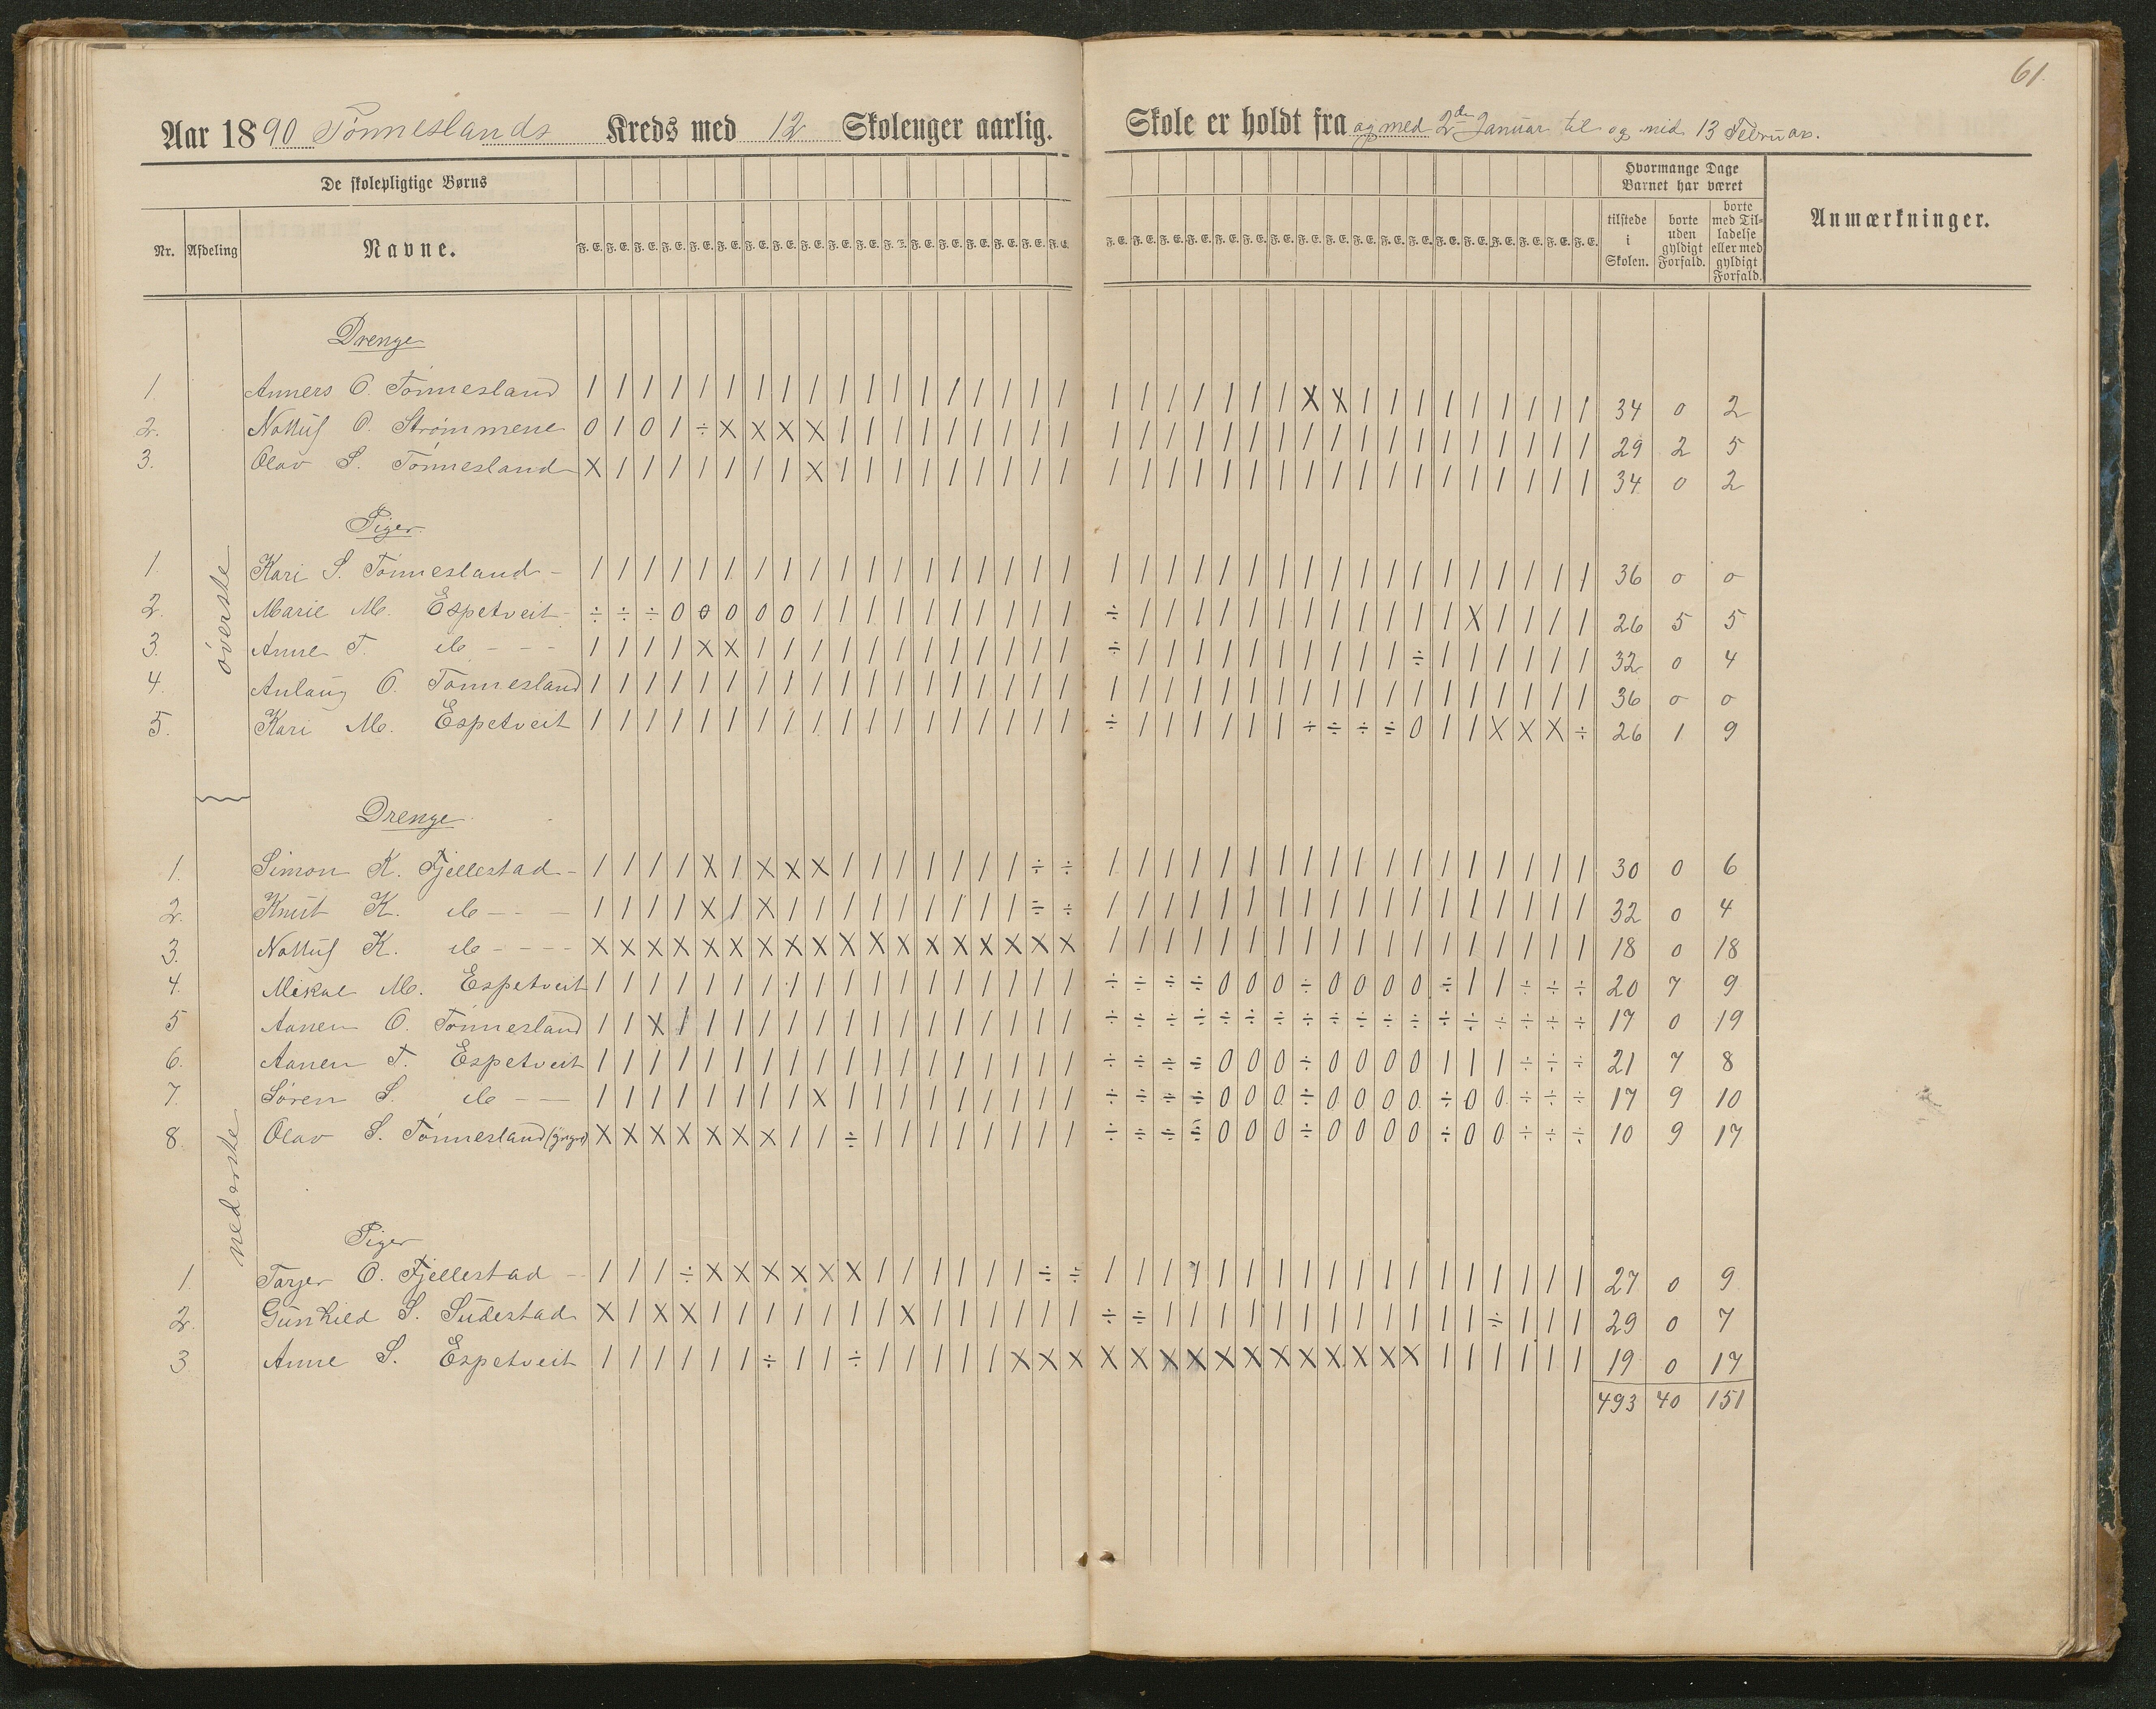 61.
Aar 1890 Tønneslands Kreds med 12 Skoleuger aarlig. Skole er holdt fra og med 2den Januar til og med 13 Februar.
De skolepligtige Børns
Hvormange Dage Barnet har været
Nr. Afdeling Navne. F. E. F. E. F. E. F. E. F. E. F. E. F. E. F. E. F. E. F. E. F. E. F. E. F. E. F. E. F. E. F. E. F. E. F. E. F. E. F. E. F. E. F. E. F. E. F. E. F. E. F. E. F. E. F. E. F. E. F. E. F. E. F. E. F. E. F. E. F. E. F. E. tilstede i Skolen. borte uden gyldigt Forfald. borte med Tilladelse eller med gyldigt Forfald. Anmærkninger.
øverste
Drenge
1. Anners O. Tønnesland / / / / / / / / / / / / / / / / / / / / / / / / / X X / / / / / / / / / 34 0 2
2. Nottuf O. Strømmene 0 / 0 / ÷ X X X X / / / / / / / / / / / / / / / / / / / / / / / / / / / 29 2 5
3. Olav S. Tønnesland X / / / / / / / X / / / / / / / / / / / / / / / / / / / / / / / / / / / 34 0 2
Piger.
1. Kari S. Tønnesland - / / / / / / / / / / / / / / / / / / / / / / / / / / / / / / / / / / / / 36 0 0
2. Marie M. Espetveit - ÷ ÷ ÷ 0 0 0 0 0 / / / / / / / / / / ÷ / / / / / / / / / / / / X / / / / 26 5 5
3. Anne T. do - - - / / / / X X / / / / / / / / / / / / ÷ / / / / / / / / / / ÷ / / / / / / 32 0 4
4. Anlaug O. Tønnesland / / / / / / / / / / / / / / / / / / / / / / / / / / / / / / / / / / / / 36 0 0
5. Kari M. Espetveit / / / / / / / / / / / / / / / / / / ÷ / / / / / / ÷ ÷ ÷ ÷ 0 / / X X X ÷ 26 1 9
nederste
Drenge
1. Simon K. Fjellestad - / / / / X / X X X / / / / / / / ÷ ÷ / / / / / / / / / / / / / / / / / / 30 0 6
2. Knut K. do - - - / / / / X / X / / / / / / / / / ÷ ÷ / / / / / / / / / / / / / / / / / / 32 0 4
3. Nottuf K. do - - - - X X X X X X X X X X X X X X X X X X / / / / / / / / / / / / / / / / / / 18 0 18
4. Mikal M. Espetveit / / / / / / / / / / / / / / / / / / ÷ ÷ ÷ ÷ 0 0 0 ÷ 0 0 0 0 ÷ / / ÷ ÷ ÷ 20 7 9
5 Aanen O. Tønnesland / / X / / / / / / / / / / / / / / / ÷ ÷ ÷ ÷ ÷ ÷ ÷ ÷ ÷ ÷ ÷ ÷ ÷ ÷ ÷ ÷ ÷ ÷ 17 0 19
6. Aanen T. Espetveit / / / / / / / / / / / / / / / / / / ÷ ÷ ÷ ÷ 0 0 0 ÷ 0 0 0 0 / / / ÷ ÷ ÷ 21 7 8
7. Søren S. do - - / / / / / / / / X / / / / / / / / / ÷ ÷ ÷ ÷ 0 0 0 ÷ 0 0 0 0 ÷ 0 0 ÷ ÷ ÷ 17 9 10
8. Olav S. Tønnesland (yngre) X X X X X X X / / ÷ / / / / / / / / ÷ ÷ ÷ ÷ 0 0 0 ÷ 0 0 0 0 ÷ 0 0 ÷ ÷ ÷ 10 9 17
Piger
1. Torjer O. Fjellestad - / / / ÷ X X X X X X / / / / / / ÷ ÷ / / / / / / / / / / / / / / / / / / 27 0 9
2. Gunhild S. Sudestad X / X X / / / / / / / X / / / / / / ÷ ÷ / / / / / / / / / / / / ÷ / / / 29 0 7
3 Anne S. Espetveit / / / / / / ÷ / / ÷ / / / / / X X X X X X X X X X X X X X X / / / / / / 19 0 17
493 40 151